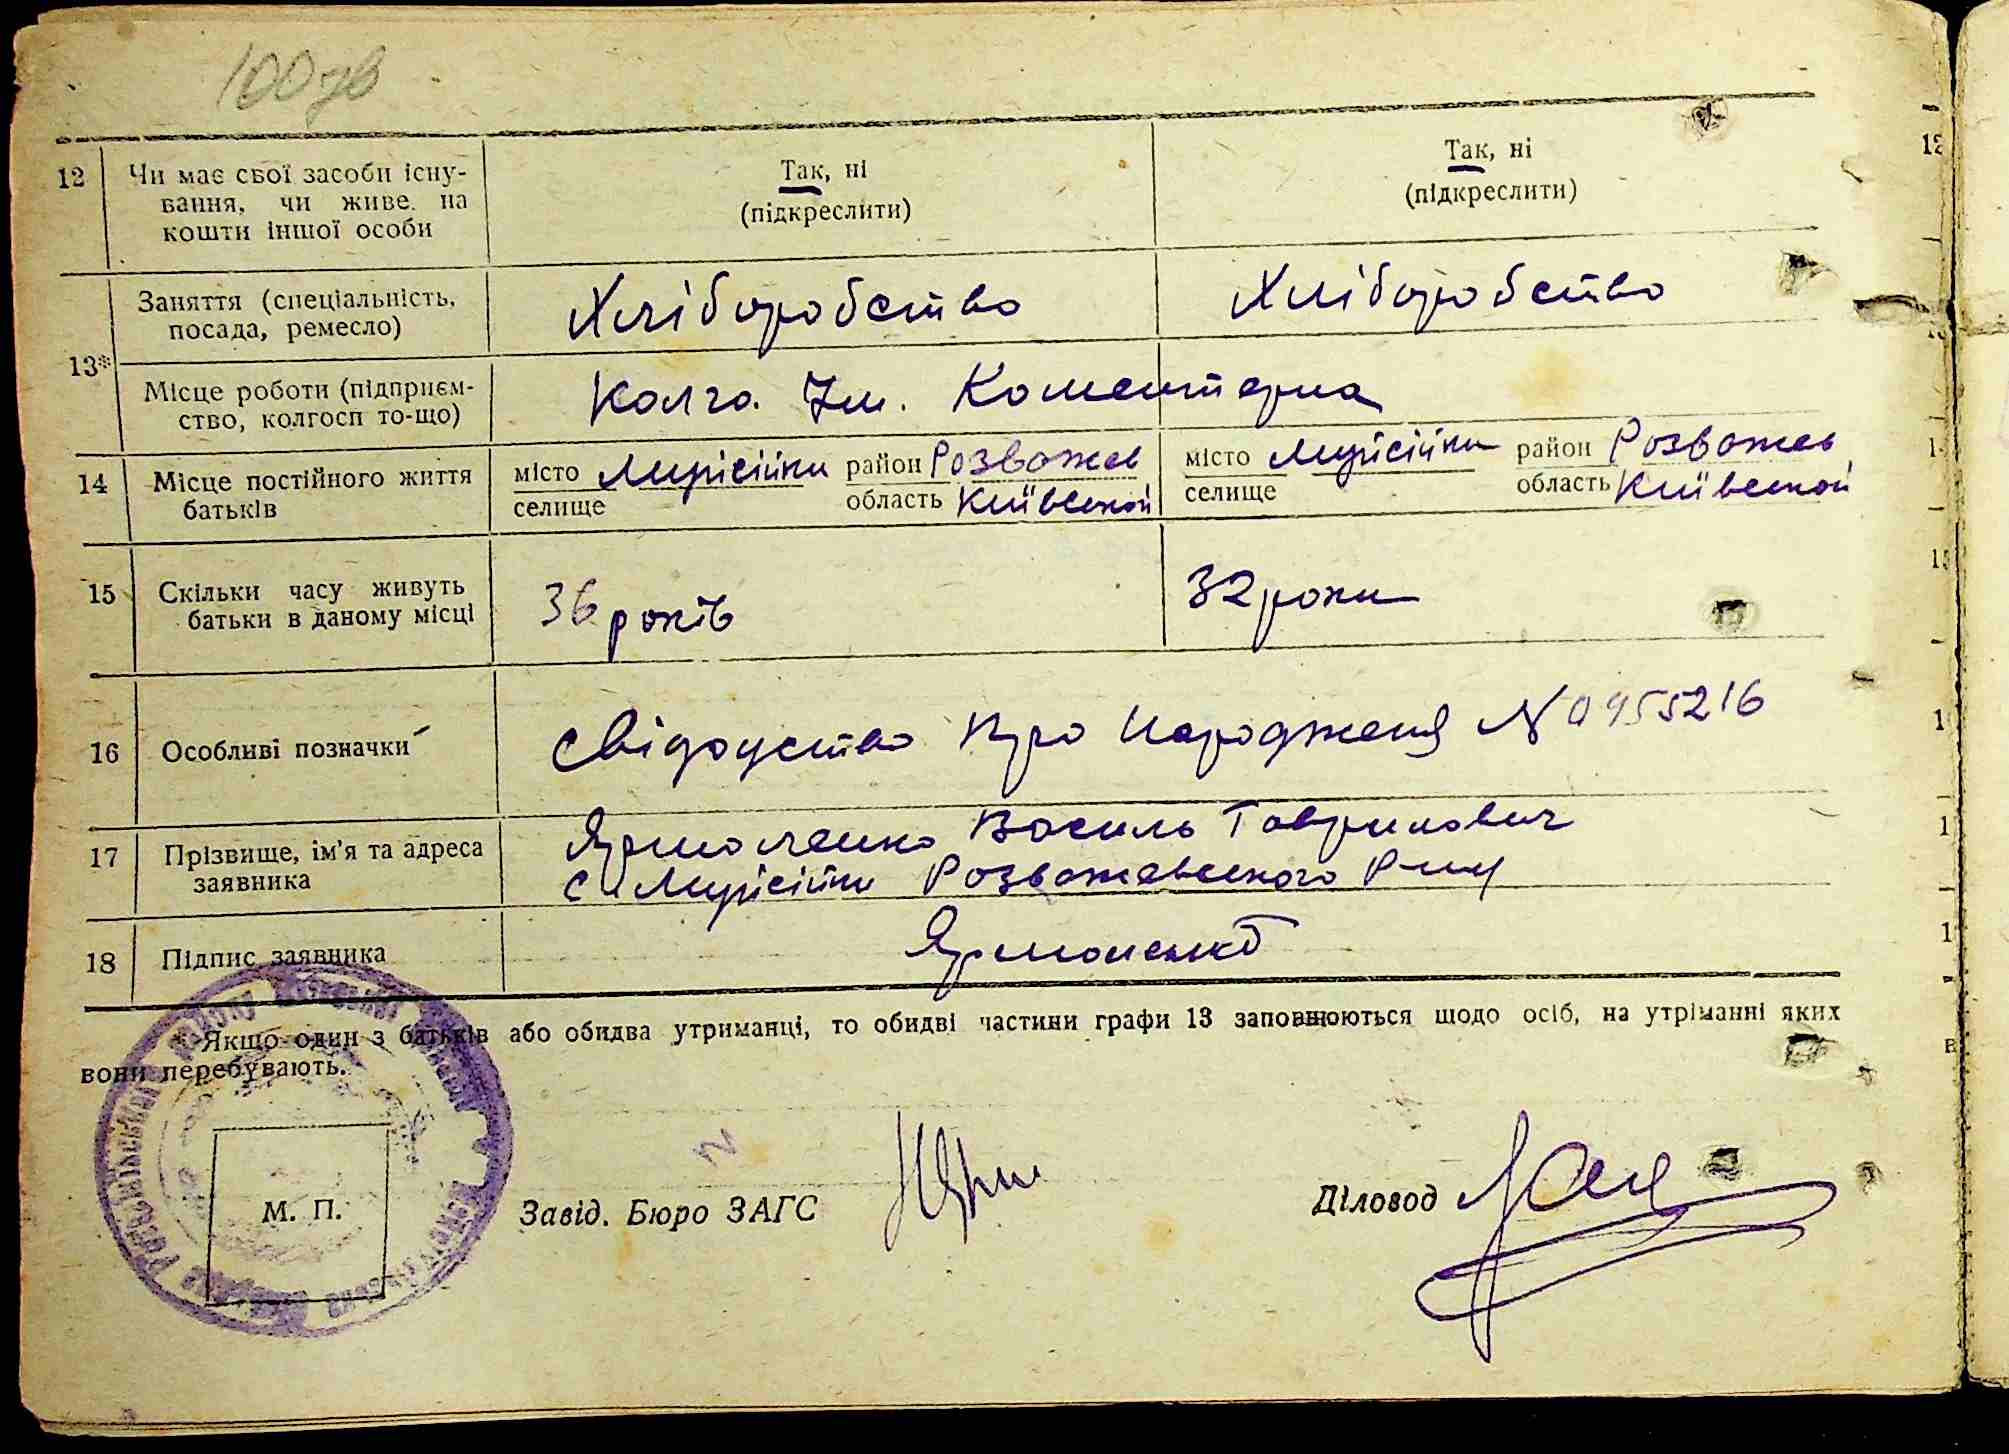 100зв
12 Чи має свої засоби існу-
вання, чи живе на
кошти іншої особи
Так, ні
(підкреслити)
Так, ні
(підкреслити)
13*
Заняття (спеціальність,
посада, ремесло)
Хліборобство
Хліборобство
Місце роботи (підприєм-
ство, колгосп то-що)
Колго. Ім. Коментерна
14 Місце постійного життя
батьків
місто Мирісійки район Розважев
селище область Київської
місто Мирісійки район Розважев
селище область Київської
15 Скільки часу живуть
батьки в даному місці
36 років
32 роки
16 Особливі позначки
Свідоцтво Про Народженя N 0455216
17 Прізвище, ім'я та адреса
заявника
Ярмоленко Василь Гаврилович
с Мирісійки Розважевського Р-ну
18 Підпис заявника
Ярмоленко
* Якщо один з батьків або обидва утриманці, то обидві частини графи 13 заповнюються щодо осіб, на утріманні яких
вони перебувають.
М. П.
Завід. Бюро ЗАГС
Діловод